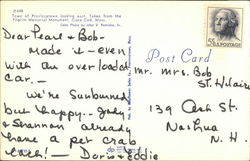 Town of Provincetown, looking east. Taken from the
Pilgrim Memorial Monument, Cape Cod, Mass.
Color Photo by John V. Perreira, Jr.
Dear Pearl + Bob -
Made it - even
with an overloaded
car. -
We're sunburned
but happy. - Judy
& Shannon already
have a pet crab
Uch! - Doris & Eddie
Post Card
Mr. Mrs. Bob
St. Hilaire
139 Ash St.
Nashua
N. H.